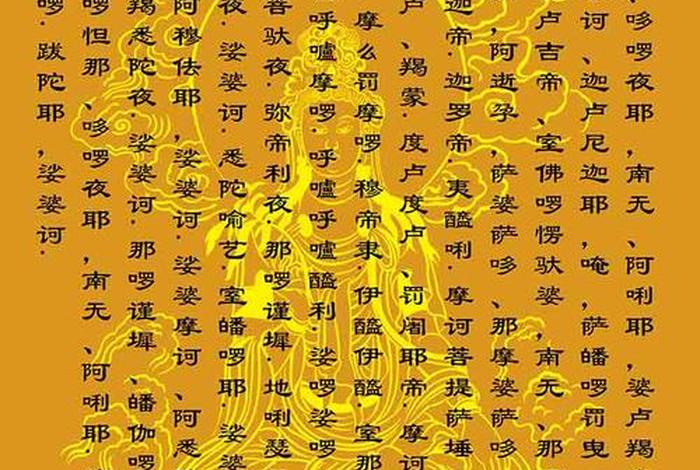 、哆啰夜耶，南无、阿唎耶，婆卢羯
诃、迦卢尼迦耶，唵，萨皤啰罚曳
卢吉帝、室佛啰愣驮婆，南无、那
，阿逝孕，萨婆萨哆、那摩婆萨哆、
迦帝．迦罗帝．夷醯唎．摩诃菩提萨埵
卢、羯蒙．度卢度卢、罚阇耶帝．摩诃
摩么罚摩啰．穆帝隶．伊醯伊醯．室那
呼嚧摩啰．呼嚧呼嚧醯利．娑啰娑啰
菩驮夜．弥帝利夜．那啰谨墀．地唎瑟
夜．娑婆诃．悉陀喻艺．室皤啰耶．娑婆
阿穆佉耶，娑婆诃．娑婆摩诃、阿悉
羯悉陀夜．娑婆诃．那啰谨墀、皤伽啰
啰怛那、哆啰夜耶，南无、阿唎耶．
啰．跋陀耶，娑婆诃．